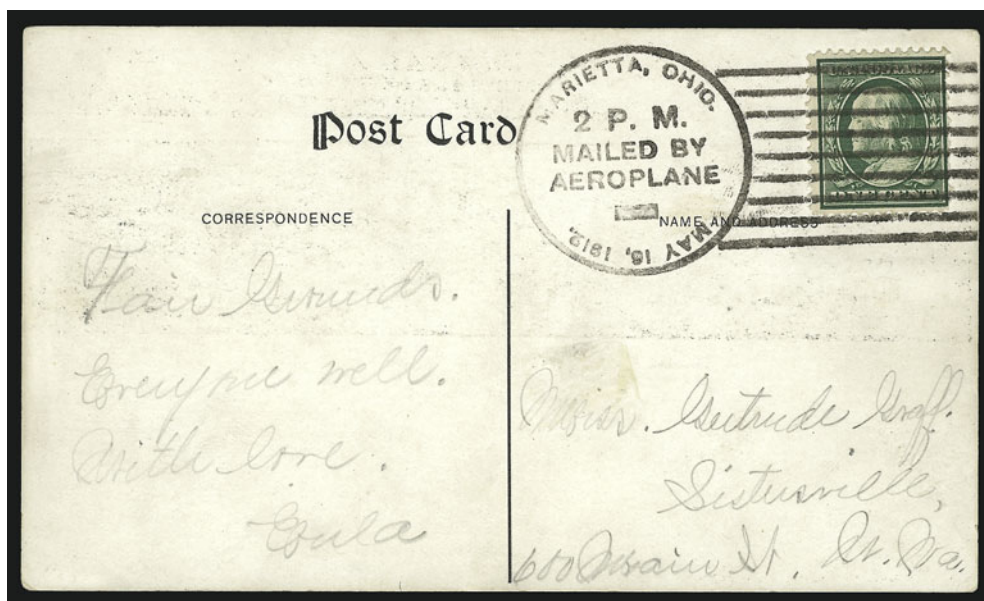 Post Card
CORRESPONDENCE
MARIETTA, OHIO.
2 P. M.
MAILED BY
AEROPLANE
MAY 16, 1912.
NAME AND ADDRESS
Fair Grounds.
Everyone well.
With love.
Eula
Miss. Gertrude Graff.
Sistersville,
600 Main St. W. Va.